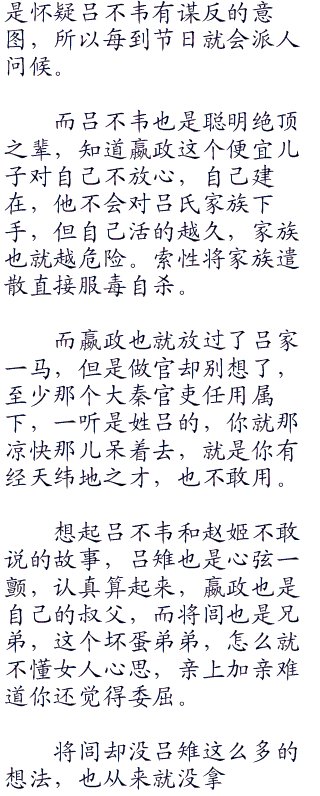 是怀疑吕不韦有谋反的意
图，所以每到节日就会派人
问候。
而吕不韦也是聪明绝顶
之辈，知道嬴政这个便宜儿
子对自己不放心，自己建
在，他不会对吕氏家族下
手，但自己活的越久，家族
也就越危险。索性将家族遣
散直接服毒自杀。
而嬴政也就放过了吕家
一马，但是做官却别想了，
至少那个大秦官吏任用属
下，一听是姓吕的，你就那
凉快那儿呆着去，就是你有
经天纬地之才，也不敢用。
想起吕不韦和赵姬不敢
说的故事，吕雉也是心弦一
颤，认真算起来，嬴政也是
自己的叔父，而将闾也是兄
弟，这个坏蛋弟弟，怎么就
不懂女人心思，亲上加亲难
道你还觉得委屈。
将闾却没吕雉这么多的
想法，也从来就没拿